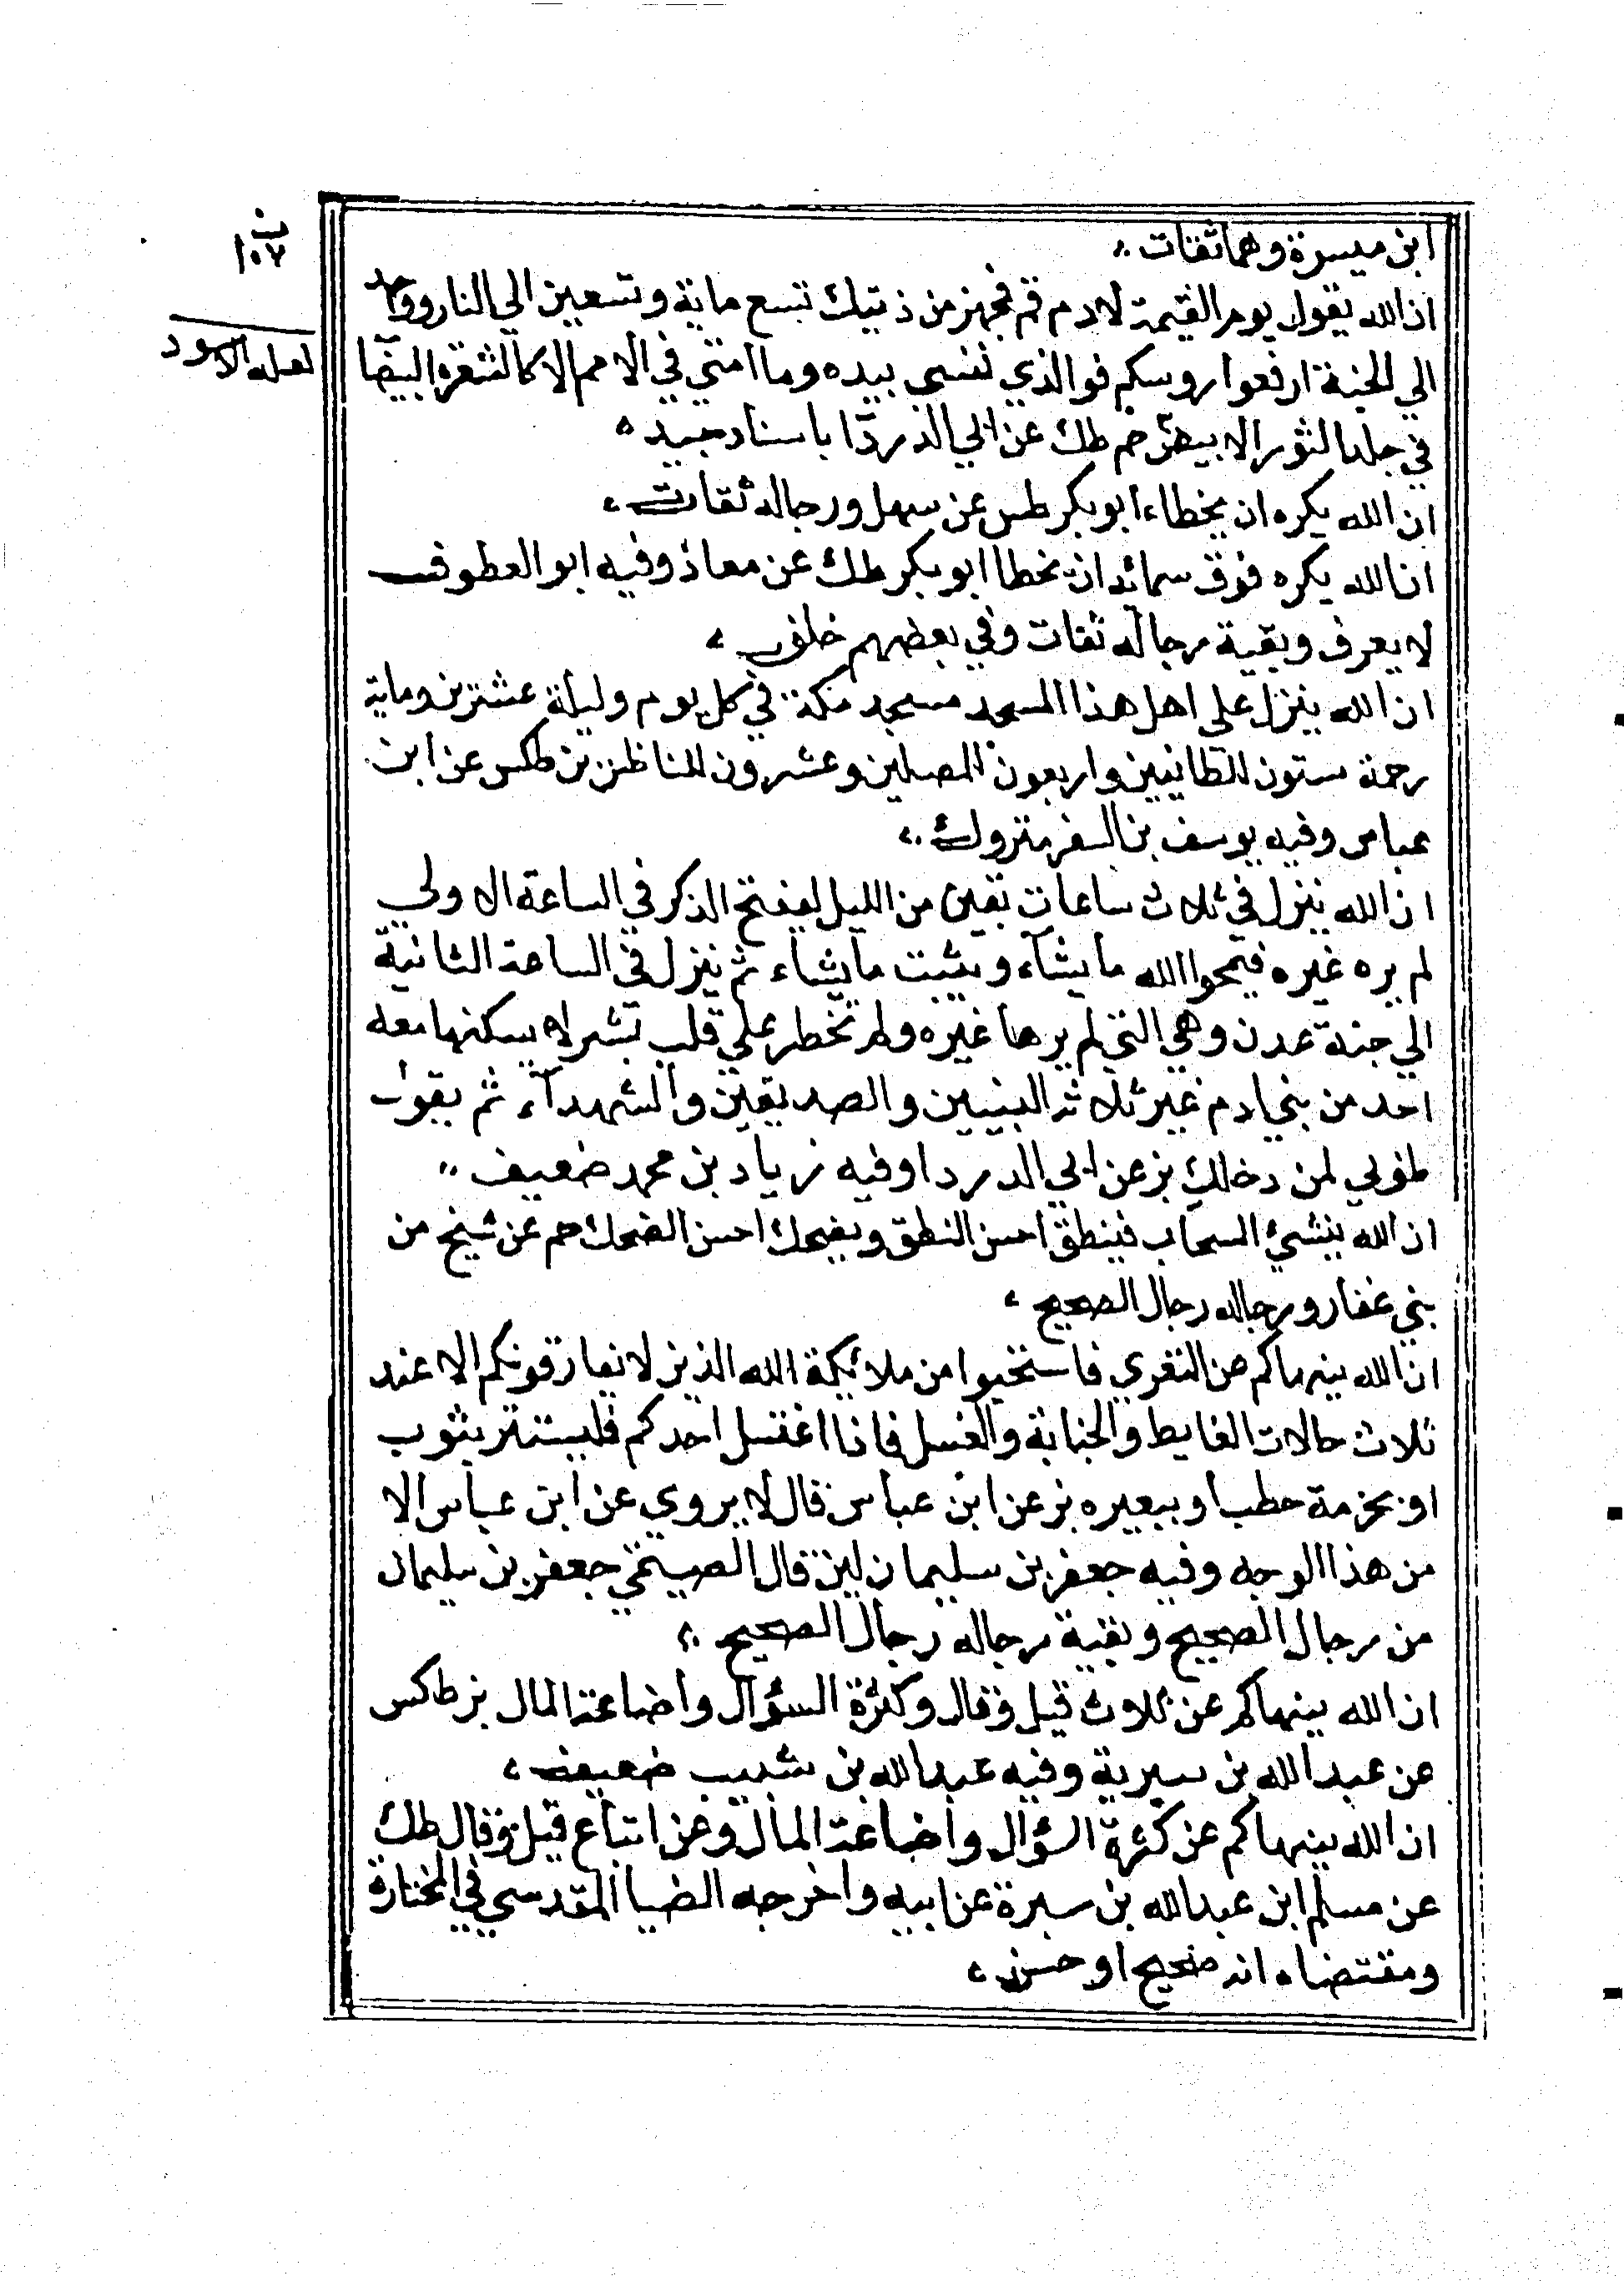 ابن ميسرة وهما ثقات
ان الله يقول يوم القيمة لادم قم فجهز من ذريتك تسع ماية وتسعين الي النار وواحد
الي الجنة ارفعوا روسكم فوالذي نفسي بيده وما امتي في الامم الا كالشعرة البيضا
في جلد الثور الابيض حم طك عن ابي الدردا باسناد جيد
ان الله يكره ان يخطاء ابو بكر طس عن سهل ورجاله ثقات
ان الله يكره فوق سمائه ان يخطا ابو بكر طك عن معاذ وفيه ابو العطوف
لا يعرف وبقية رجاله ثقات وفي بعضهم خلف
ان الله ينزل على اهل هذا المسجد مسجد مكة في كل يوم وليلة عشرين وماية
رحمة ستون للطايفين واربعون للمصلين وعشرون للناظرين طكس عن ابن
عباس وفيه يوسف بن السفر متروك
ان الله ينزل في ثلاث ساعات بقين من الليل يفتح الذكر في الساعة الاولي
لم يره غيره فيمحوا الله ما يشآء ويثبت ما يشاء ثم ينزل في الساعة الثانية
الي جنة عدن وهي التي لم يرها غيره ولم تخطر علي قلب بشر لا يسكنها معه
احد من بني ادم غير ثلاثه النبيين والصديقين والشهدآء ثم يقول
طوبي لمن دخلك بز عن ابي الدردا وفيه زياد بن محمد ضعيف
ان الله ينشئ السحاب فينطق احسن النطق ويضحك احسن الضحك حم عن شيخ من
بني غفار ورجاله رجال الصحيح
ان الله ينهاكم عن التعري فاستحيوا من ملائكة الله الذين لا يفارقونكم الا عند
ثلاث حالات الغايط والجنابة والغسل فاذا اغتسل احدكم فليستتر بثوب
او بحزمة حطب او ببعيره بز عن ابن عباس قال لا يروي عن ابن عباس الا
من هذا الوجه وفيه جعفر بن سليمان لين قال الهيثمي جعفر بن سليمان
من رجال الصحيح وبقية رجاله رجال الصحيح
ان الله ينهاكم عن ثلاث قيل وقال وكثرة السؤال واضاعة المال بز طكس
عن عبد الله بن سبرة وفيه عبد الله بن شبيب ضعيف
ان الله ينهاكم عن كثرة السؤال واضاعة المال وعن اتباع قيل وقال طك
عن مسلم ابن عبد الله بن سبرة عن ابيه واخرجه الضيا المقدسي في المختارة
ومقتضاه انه صحيح او حسن
١٠٧
لعله الاسود